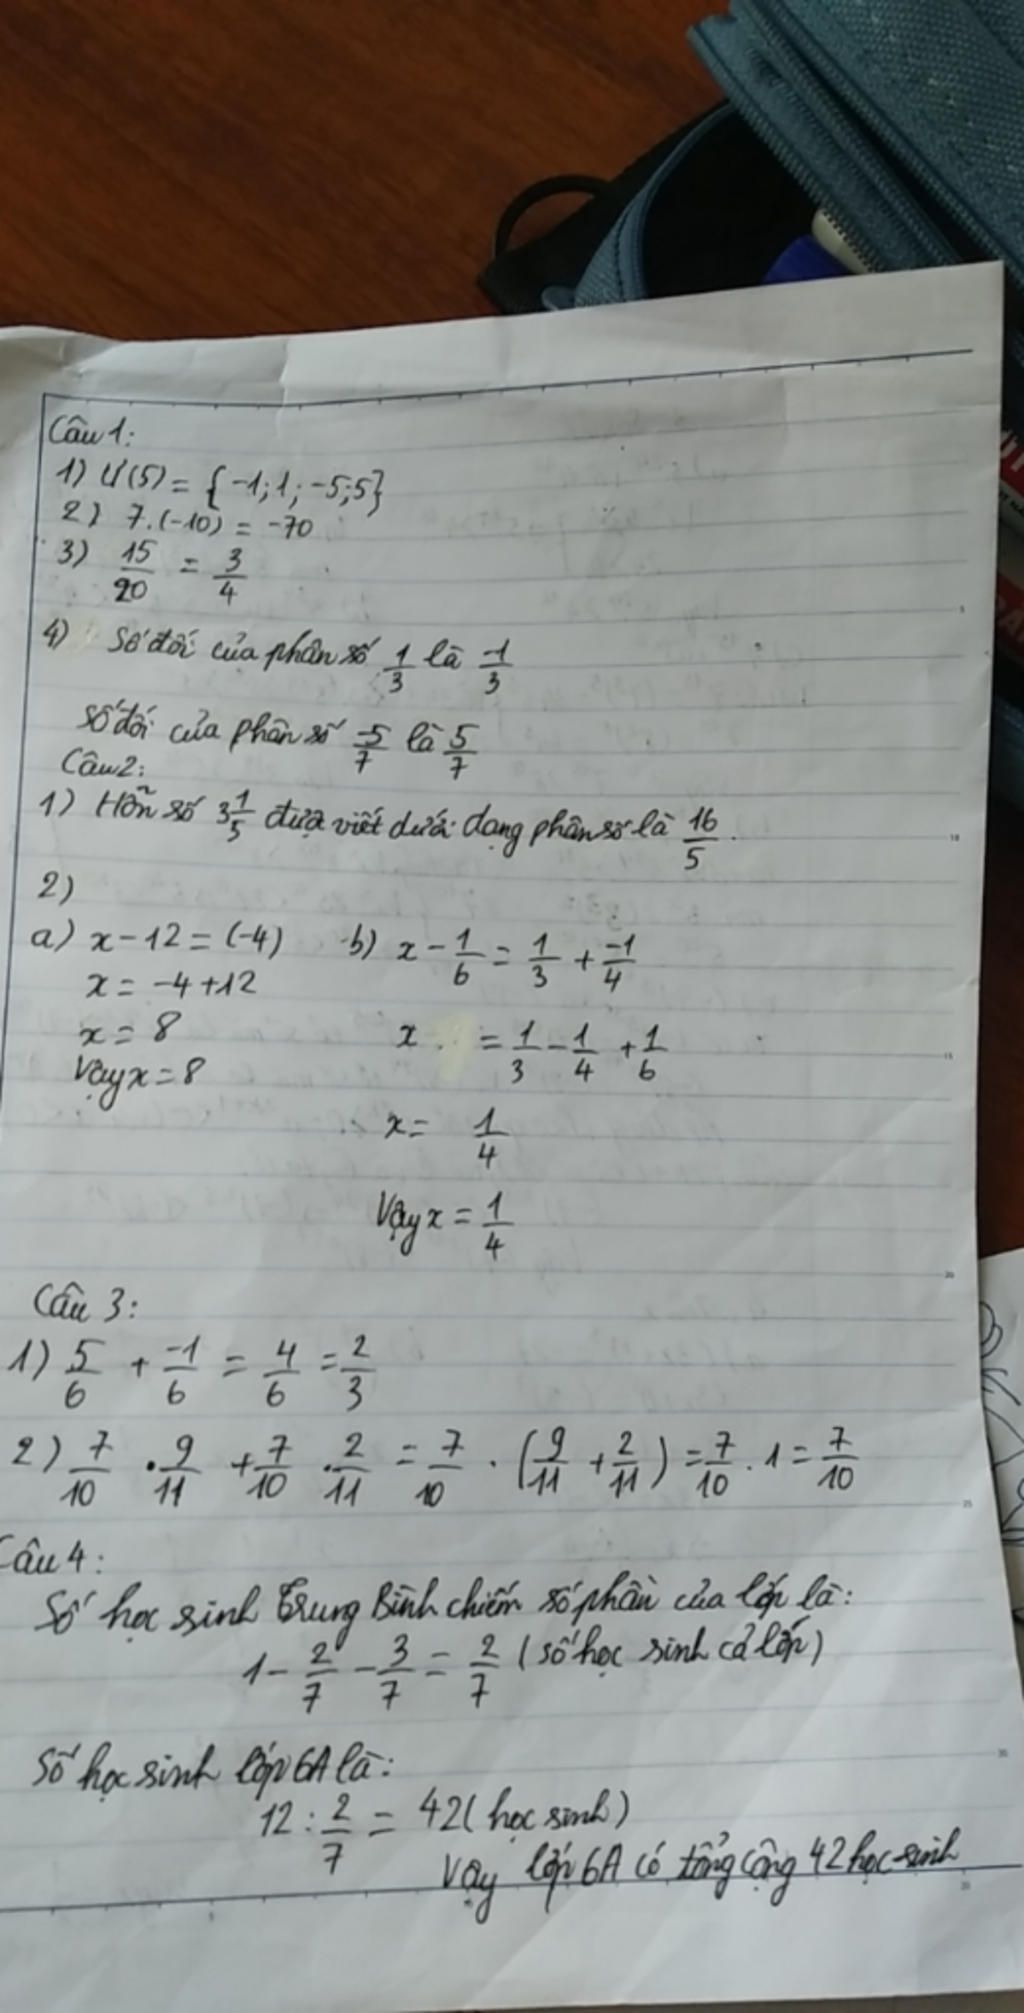 Câu 1:
1) Ư(5) = {-1; 1; -5; 5}
2) 7.(-10) = -70
3) 15/20 = 3/4
4) Số đối của phân số 1/3 là -1/3
số đối của phân số -5/7 là 5/7
Câu 2:
1) Hỗn số 3 1/5 được viết dưới dạng phân số là 16/5.
2)
a) x - 12 = (-4) b) x - 1/6 = 1/3 + -1/4
x = -4 + 12
x = 8 x = 1/3 - 1/4 + 1/6
Vậy x = 8
x = 1/4
Vậy x = 1/4
Câu 3:
1) 5/6 + -1/6 = 4/6 = 2/3
2) 7/10 . 9/11 + 7/10 . 2/11 = 7/10 . (9/11 + 2/11) = 7/10 . 1 = 7/10
Câu 4:
Số học sinh Trung Bình chiếm số phần của lớp là:
1 - 2/7 - 3/7 = 2/7 (số học sinh cả lớp)
Số học sinh lớp 6A là:
12 : 2/7 = 42 (học sinh)
Vậy lớp 6A có tổng cộng 42 học sinh